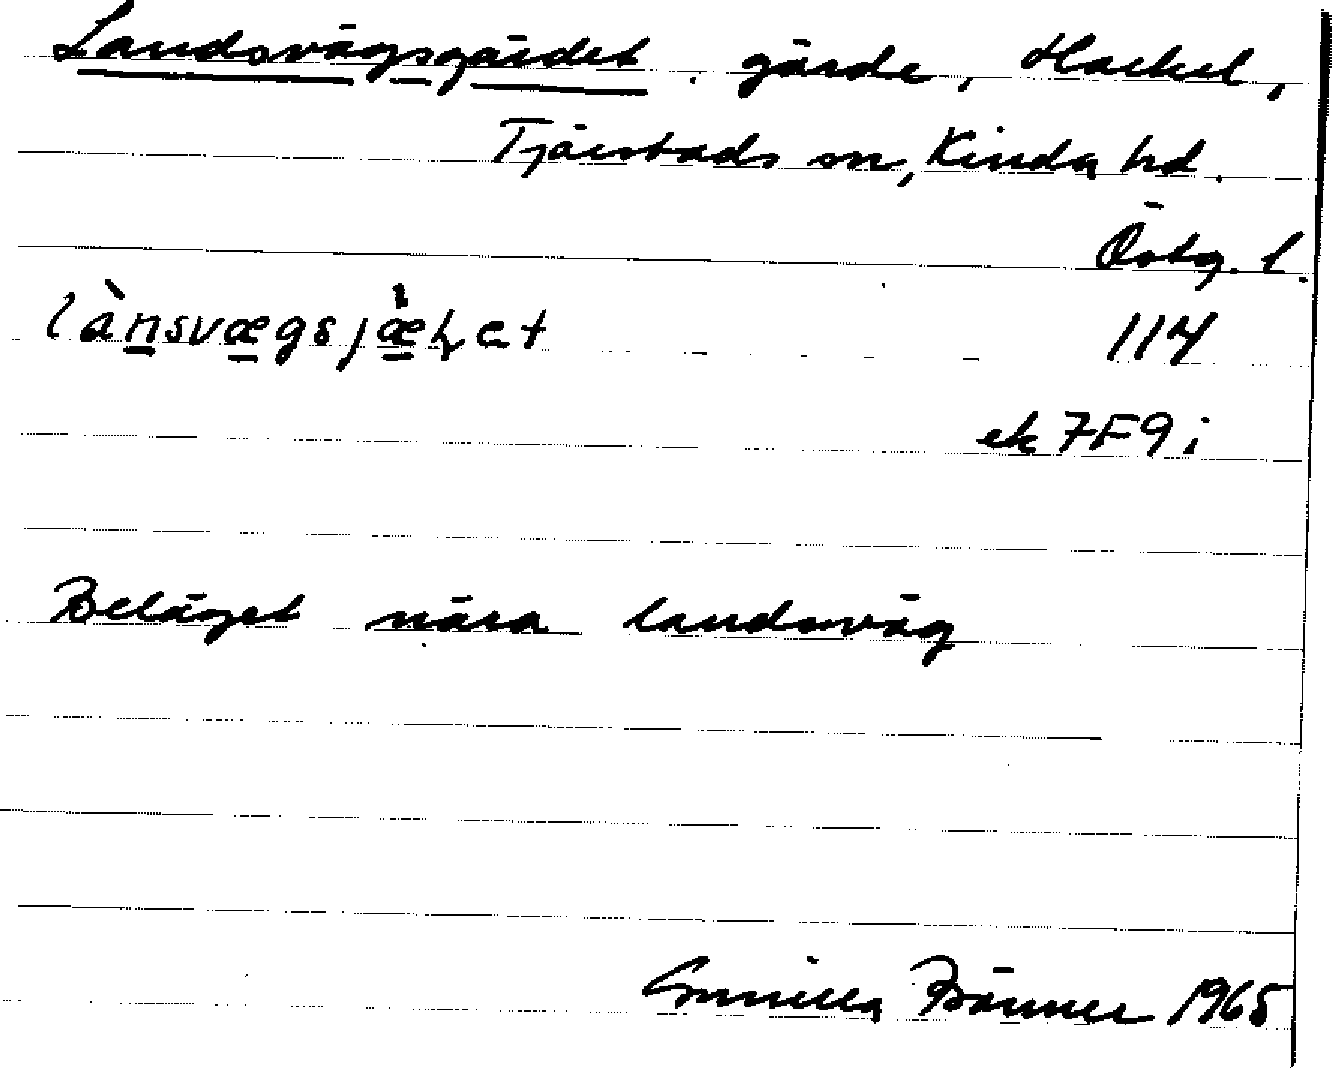 Landsvägsgärdet. gärde, Hackel,
Tjärstads sn, Kinda hd.
Östg. l.
lànsvægsjæ̀ḥet 114
ek 7F9i
Beläget nära landsväg
Gunilla Brämer 1965